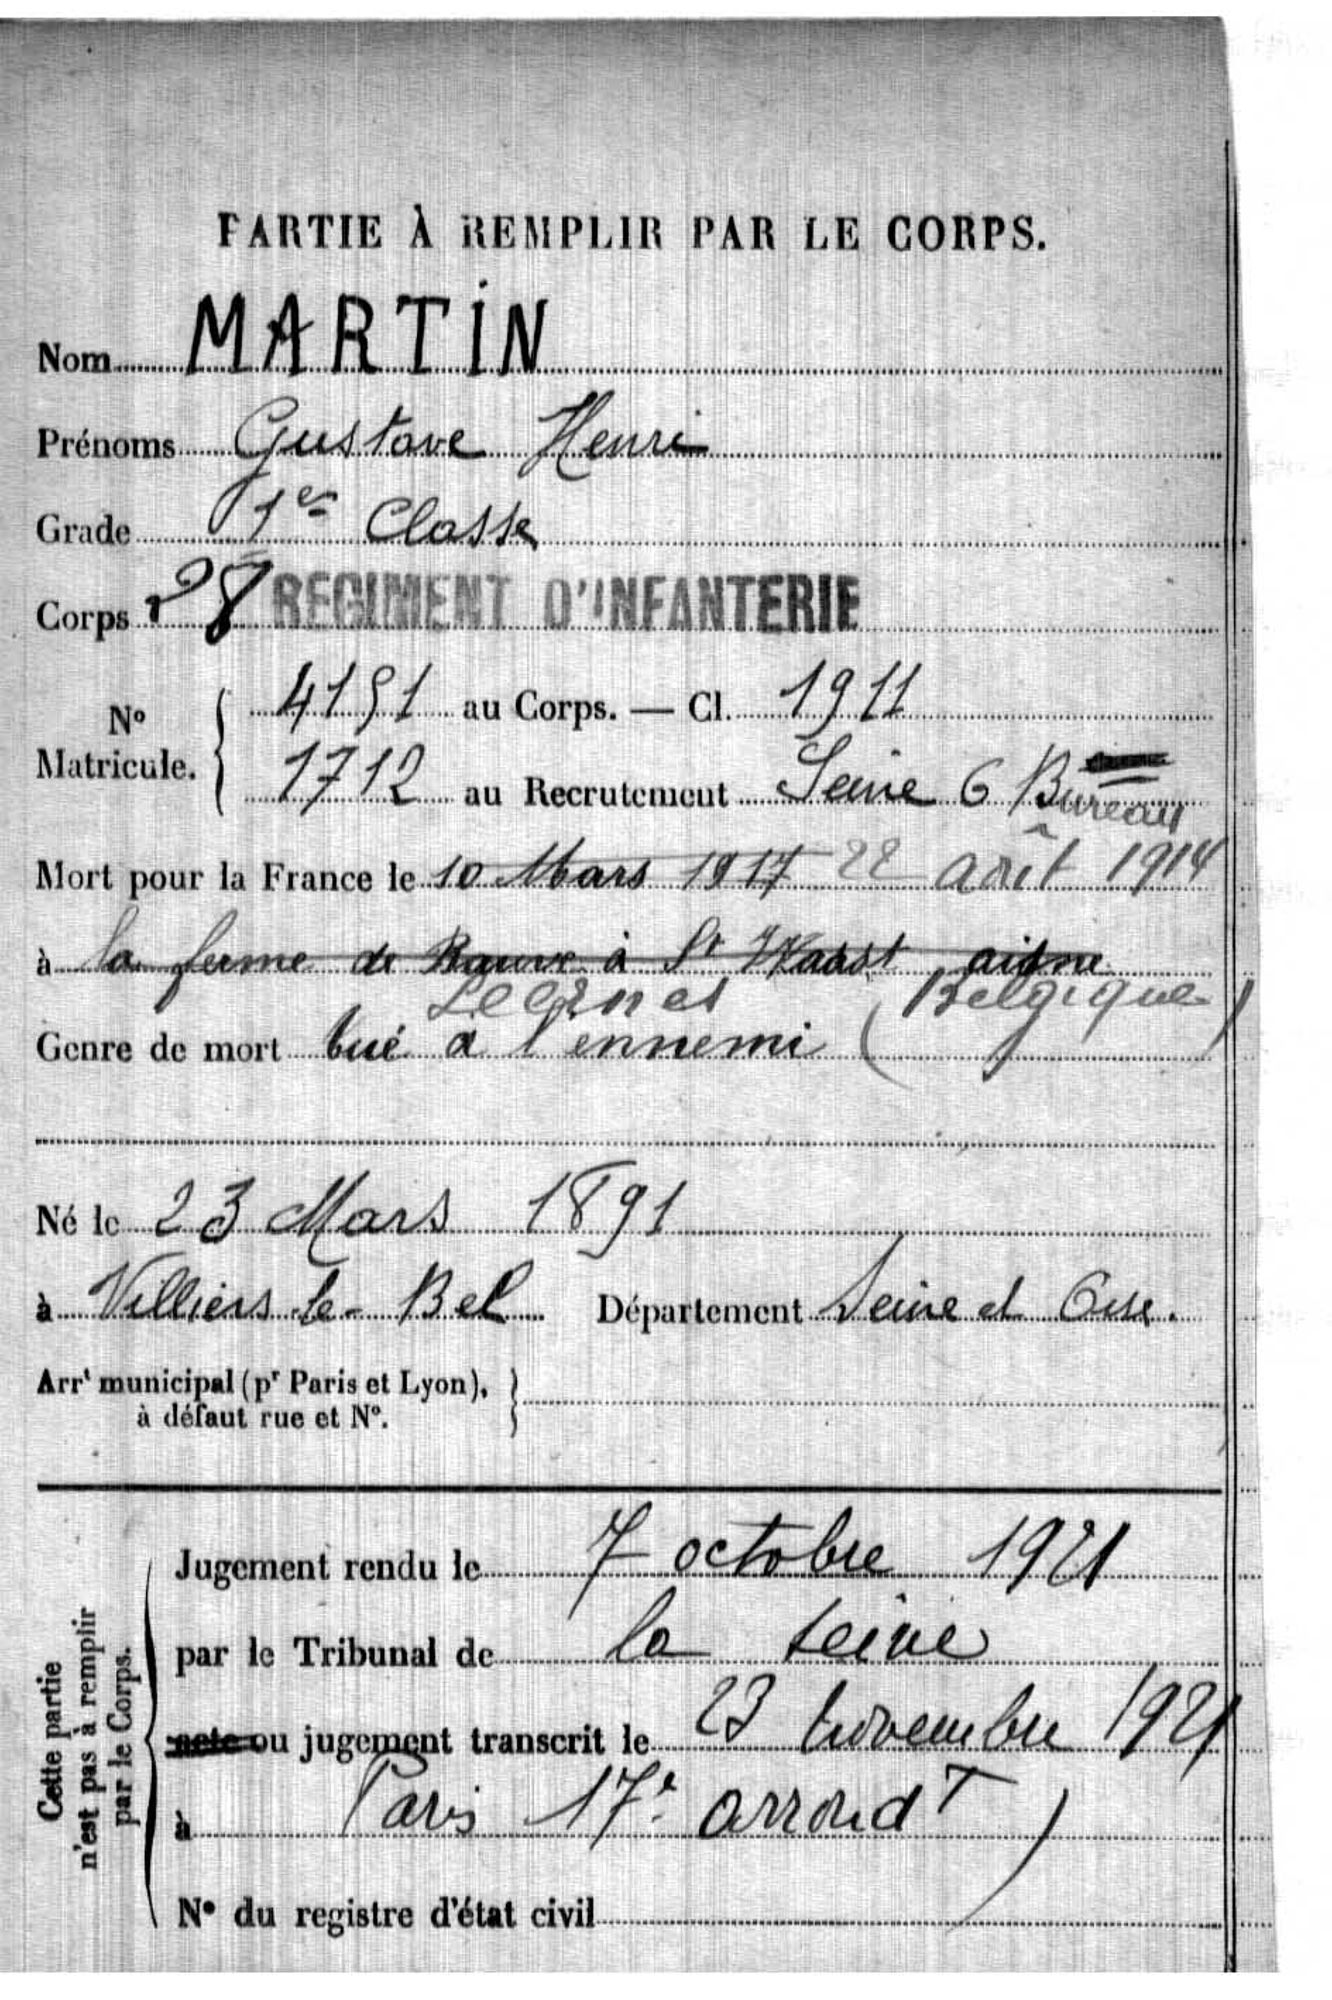 PARTIE À REMPLIR PAR LE CORPS.
Nom MARTIN
Prénoms Gustave Henri
Grade 1ère Classe
Corps 28 REGIMENT D'INFANTERIE
N° Matricule. 4191 au Corps. — Cl. 1911
1712 au Recrutement Seine 6 Bureau
Mort pour la France le 10 Mars 1917 22 août 1914
à la ferme de à St Waast aisne
Leernes (Belgique)
Genre de mort tué a l'ennemi
Né le 23 Mars 1891
à Villiers-le-Bel Département Seine et Oise.
Arrt municipal (pr Paris et Lyon),
à défaut rue et N°.
Cette partie
n'est pas à remplir
par le Corps.
Jugement rendu le 7 octobre 1921
par le Tribunal de la Seine
acte ou jugement transcrit le 23 novembre 1921
à Paris 17e arrondT
N° du registre d'état civil